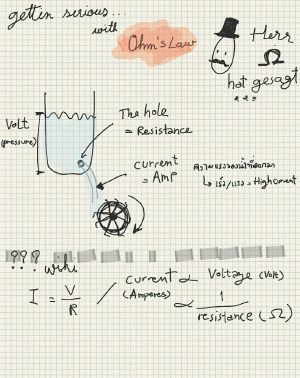 gettin serious...
with
Ohm's Law
Herr
Ω
hat gesagt
...
Volt
(pressure)
The hole
= Resistance
current
= Amp
ความแรงของน้ำที่ออก
↳ เร็ว/แรง = High current
??? wiki
I = V/R / Current ∝ Voltage (Volt)
(Amperes) ∝ 1/resistance (Ω)